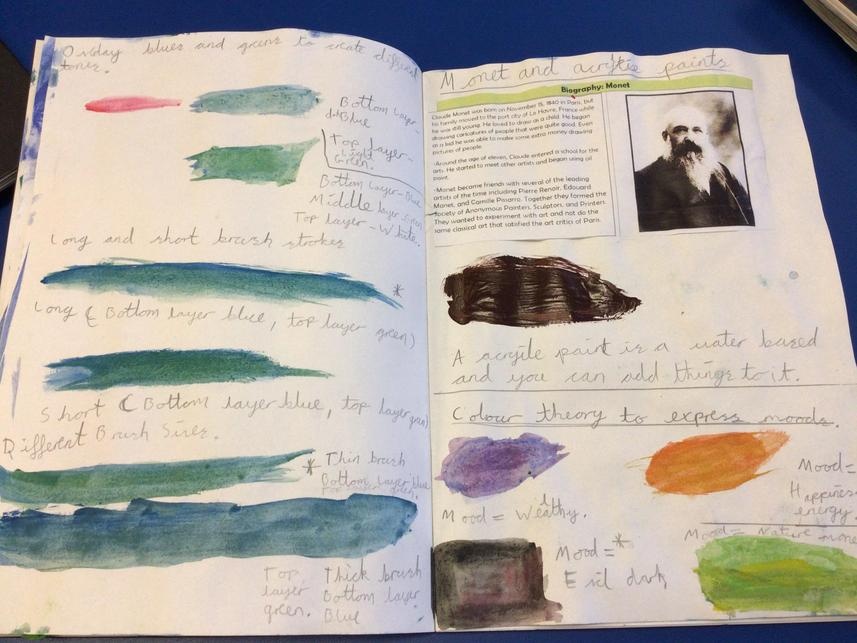 Overlay blues and greens to create different
tones.
Bottom layer-
Blue
Top layer-
Light
Green.
Bottom layer-Blue
Middle layer Green
Top layer-White.
Long and short brush strokes
*
Long ( Bottom layer blue, top layer green)
Short ( Bottom layer blue, top layer green)
Different Brush Sizes.
* Thin brush
Bottom layer blue
Top layer green.
Top layer green.
Thick brush
Bottom layer
Blue
Monet and acrylic paints
Biography: Monet
Claude Monet was born on November 15, 1840 in Paris, but
his family moved to the port city of La Havre, France while
he was still young. He loved to draw as a child. He began
drawing caricatures of people that were quite good. Even
as a kid he was able to make some extra money drawing
pictures of people.
·Around the age of eleven, Claude entered a school for the
arts. He started to meet other artists and began using oil
paint.
·Monet became friends with several of the leading
artists of the time including Pierre Renoir, Edouard
Manet, and Camille Pissarro. Together they formed the
Society of Anonymous Painters, Sculptors, and Printers.
They wanted to experiment with art and not do the
same classical art that satisfied the art critics of Paris.
A acrylic paint is a water based
and you can add things to it.
Colour theory to express moods.
Mood = Wealthy.
Mood=
Happiness
energy
Mood=*
Evil dark
Mood= Nature money